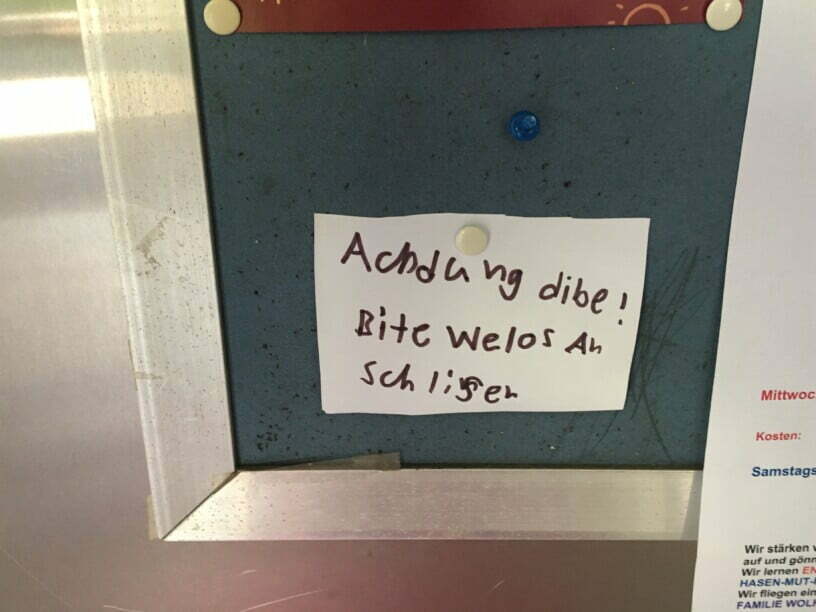 Achdung dibe!
Bite Welos An
schlisen
Mittwoc
Kosten:
Samstags
Wir stärken
auf und gönn
Wir lernen EN
HASEN-MUT-
Wir fliegen ein
FAMILIE WOL